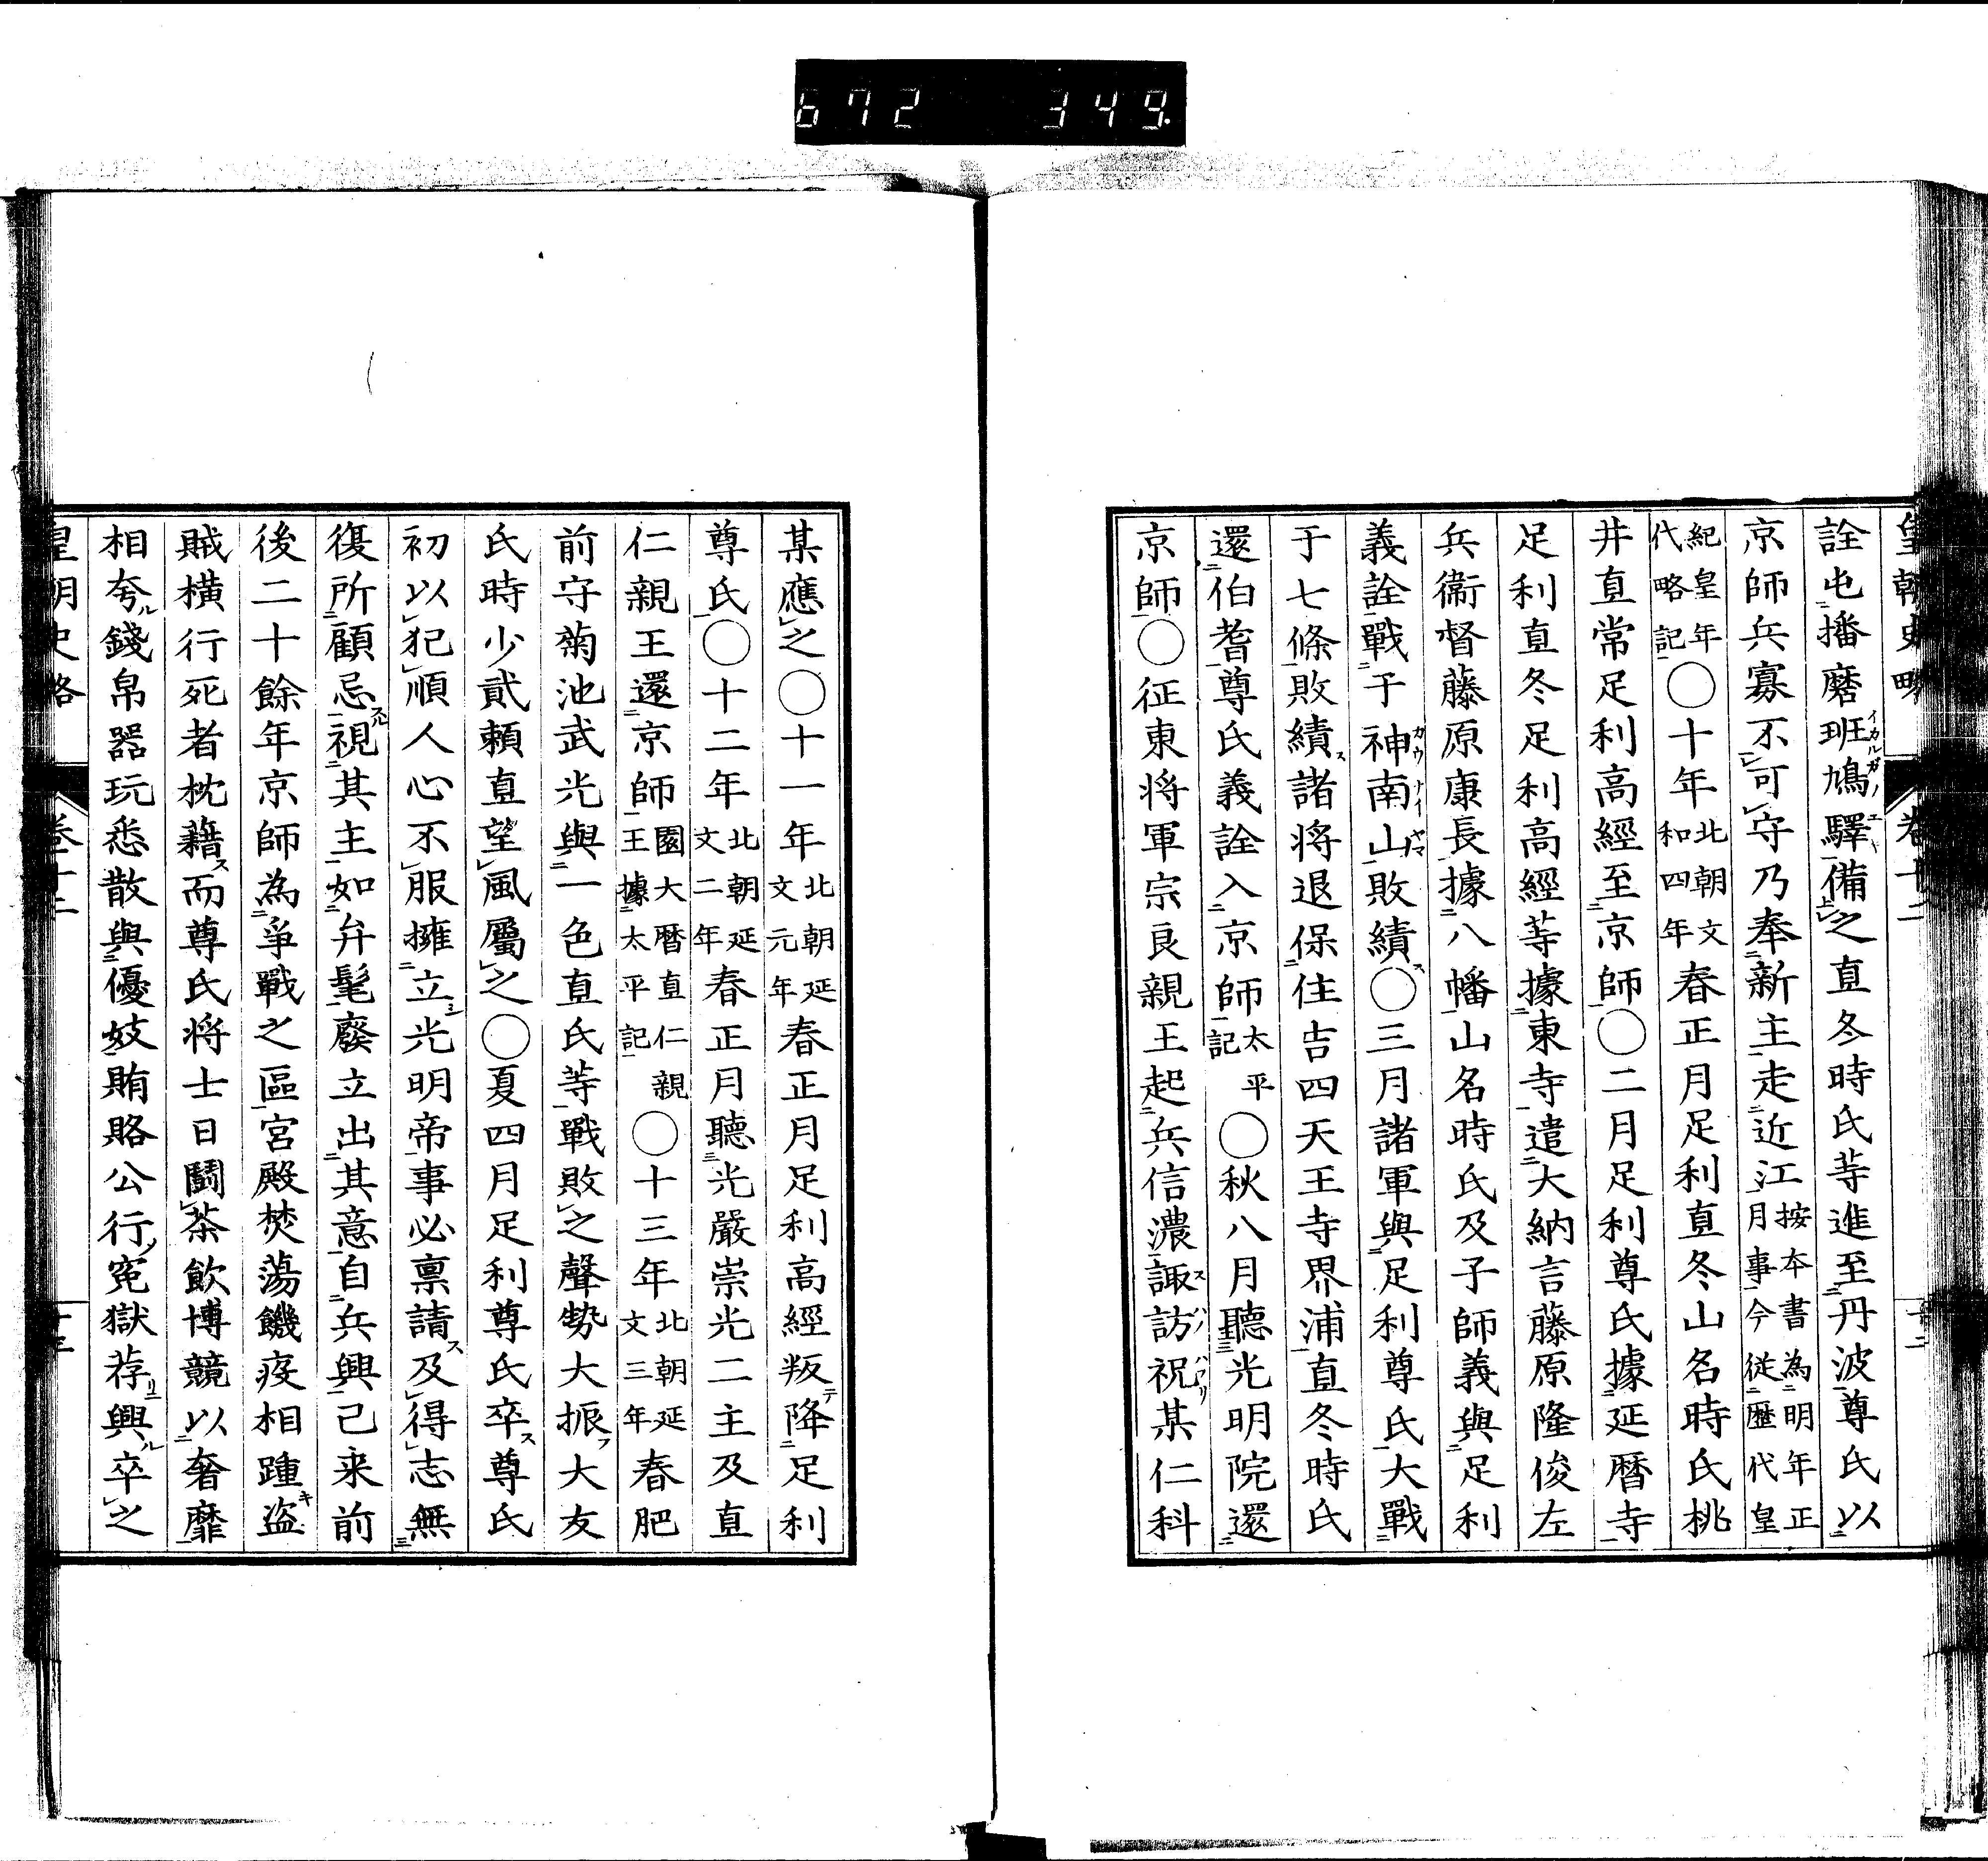 672 349.
皇朝史略 卷十二
詮屯播磨班鳩驛備之直冬時氏等進至丹波尊氏以
京師兵寡不可守乃奉新主走近江按本書為明年正月事今從歷代皇
紀皇年代略記○十年北朝文和四年春正月足利直冬山名時氏桃
井直常足利高經至京師○二月足利尊氏據延曆寺
足利直冬足利高經等據東寺遣大納言藤原隆俊左
兵衞督藤原康長據八幡山名時氏及子師義與足利
義詮戰于神南山敗績○三月諸軍與足利尊氏大戰
于七條敗績諸将退保住吉四天王寺界浦直冬時氏
還伯耆尊氏義詮入京師太平記○秋八月聽光明院還
京師○征東将軍宗良親王起兵信濃諏訪祝某仁科
某應之○十一年北朝延文元年春正月足利高經叛降足利
尊氏○十二年北朝延文二年春正月聽光嚴崇光二主及直
仁親王還京師園大曆直仁親王據太平記○十三年北朝延文三年春肥
前守菊池武光與一色直氏等戰敗之聲勢大振大友
氏時少貳賴直望風屬之○夏四月足利尊氏卒尊氏
初以犯順人心不服擁立光明帝事必禀請及得志無
復所顧忌視其主如弁髦廢立出其意自兵興已来前
後二十餘年京師為爭戰之區宮殿焚蕩饑疫相踵盜
賊橫行死者枕藉而尊氏将士日鬪茶飲博競以奢靡
相夸錢帛器玩悉散與優妓賄賂公行寃獄荐興卒之
皇朝史略 卷十二 十三